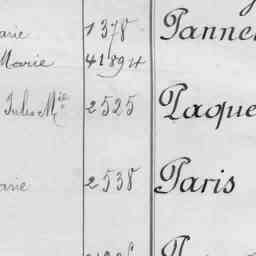 arie 1378 Panne
Marie 41894
Jules Mie 2525 Paque
arie 2538 Paris